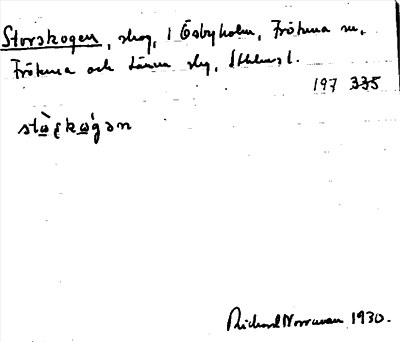 Storskogen, skog, i Ösbyholm, Frötuna sn,
Frötuna och Länna slg, Sthlms l.
197 335
Richard Norrman 1930.